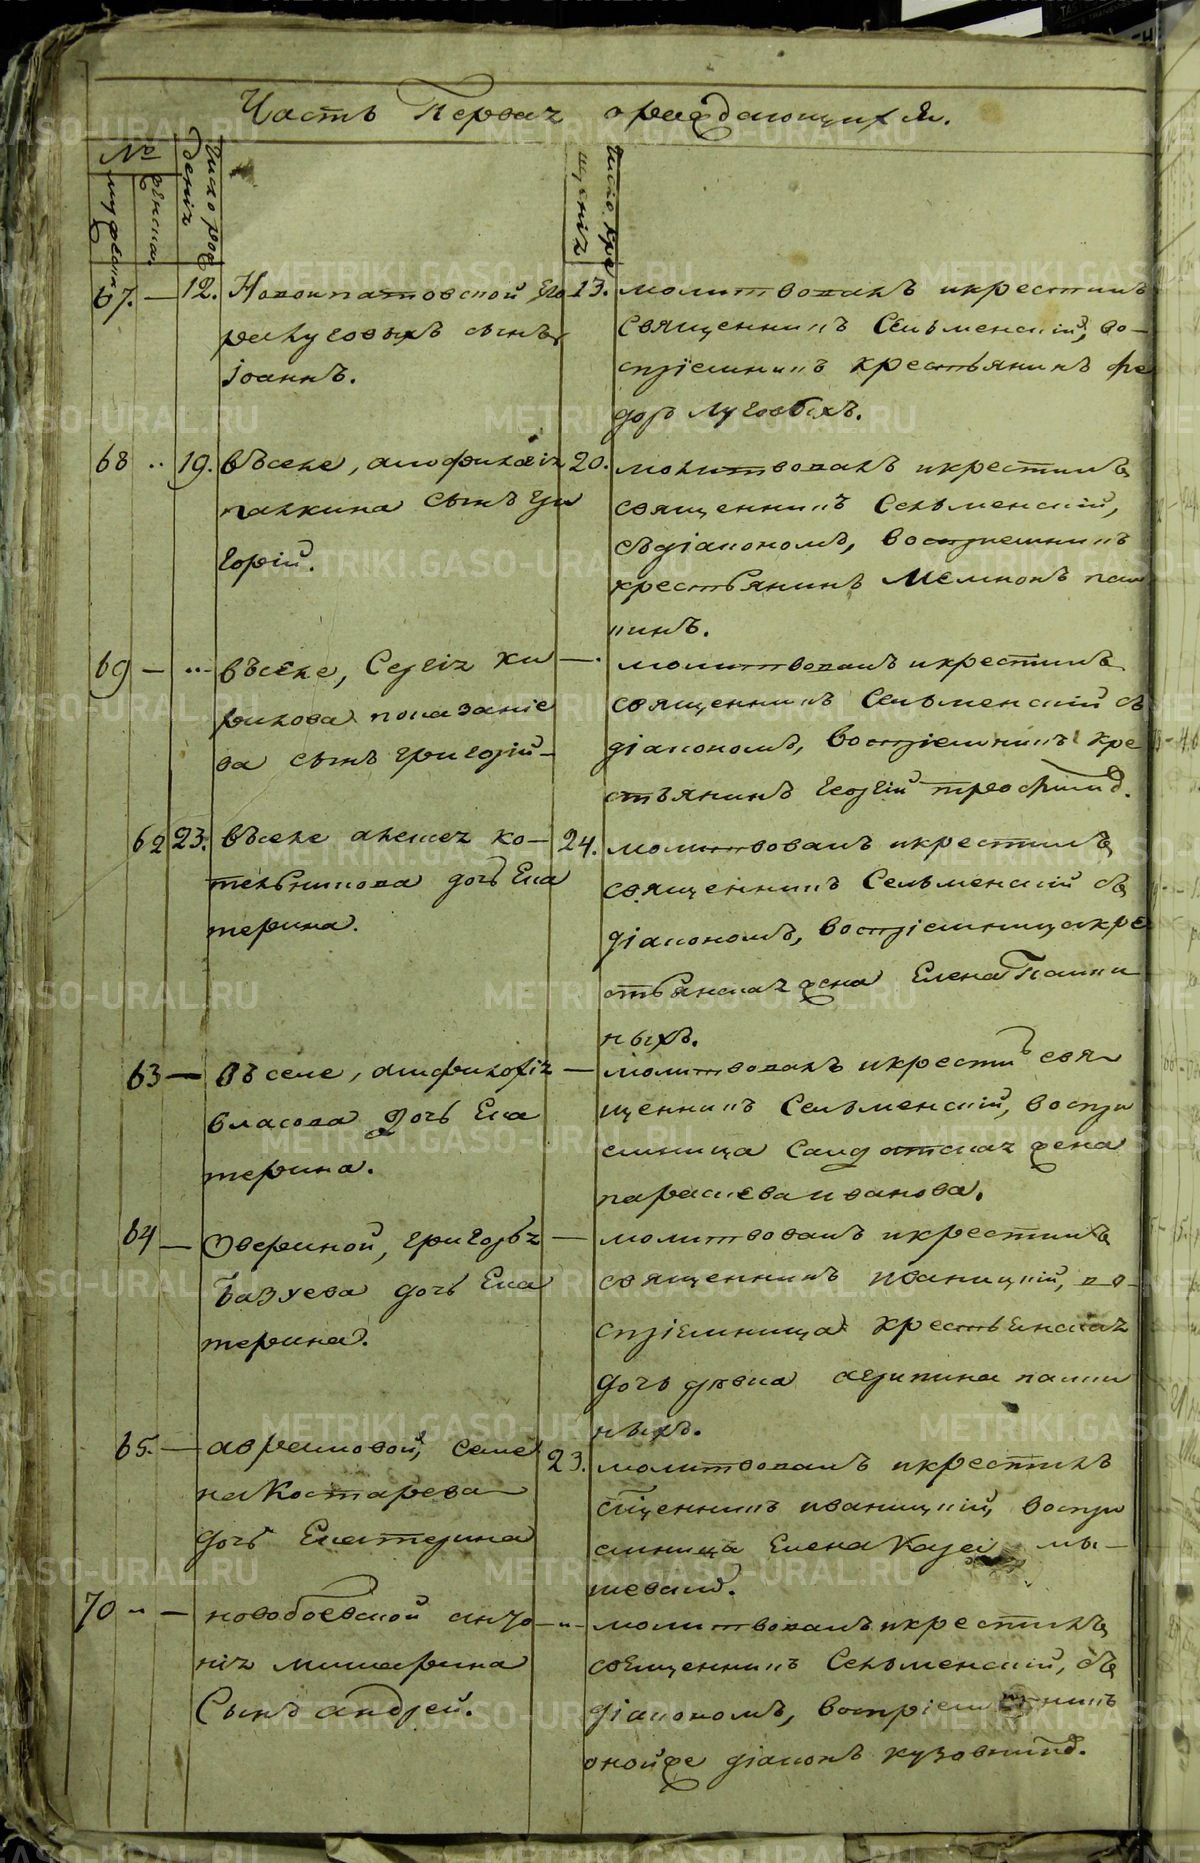 Часть Первая ораждающихся.
№
мужеска
женска
Число рож
денія
Число кре
щенія
67. — 12. Новоипатовской, Его
ра Луговыхъ сынъ
Іоаннъ.
13. молитвовалъ и крестилъ
Священникъ Сельменскій, во-
спріемникъ крестьянинъ Фе
доръ Луговыхъ.
68 .. 19. въ селе, амофилохія
палкина сынъ Гри
горій.
20. молитвовалъ и крестилъ
священникъ Сельменскій,
съ діакономъ, воспріемникъ
крестьянинъ Мемнонъ паш
нинъ.
69 — ... въ селе, Сергія
показаніе
ва сынъ григорій —
—. молитвовалъ и крестилъ
священникъ Сельменскій съ
діакономъ, воспріемникъ кре
стьянинъ Георгій
62 23. въ селе алексея ко-
тельникова дочь Ека
терина.
24. молитвовалъ и крестилъ
священникъ Сельменскій съ
діакономъ, воспріемница кре
стьянская жена Елена Пашни
ныхъ.
63 — Въ селе, амфилохія
власова дочь Ека
терина.
— молитвовалъ и крестилъ свя
щенникъ Сельменскій, воспри
емница Салдатская жена
параскева иванова.
64 — Озериной, григорья
Базуева дочь Ека
терина.
— молитвовалъ и крестилъ
священникъ иваницкій, во-
спріемница крестьенская
дочь девка агрипина пашни
ныхъ.
65. — абрамовой, семе
на Костарева
дочь Екатерина
23. молитвовалъ и крестилъ
сщенникъ иваницкій, воспри
емница Елена мы-
70 .. — новобоевской анто
нія мишарина
Сынъ андрей.
— молитвовалъ и крестилъ
священникъ Сельменскій, съ
діакономъ, воспріемникъ
онойже діаконъ кузовниковъ.
METRIKI.GASO-URAL.RU